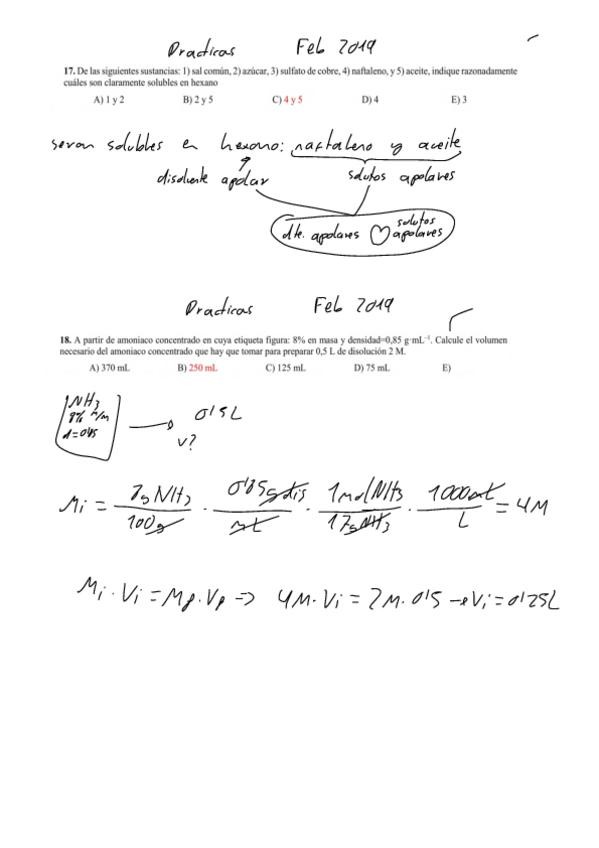 Practicas Feb 2019
17. De las siguientes sustancias: 1) sal común, 2) azúcar, 3) sulfato de cobre, 4) naftaleno, y 5) aceite, indique razonadamente
cuáles son claramente solubles en hexano
A) 1 y 2 B) 2 y 5 C) 4 y 5 D) 4 E) 3
seran solubles en hexano: naftaleno y aceite
disolvente apolar solutos apolares
dte. apolares ♡ solutos apolares
Practicas Feb 2019
18. A partir de amoniaco concentrado en cuya etiqueta figura: 8% en masa y densidad=0,85 g·mL⁻¹. Calcule el volumen
necesario del amoniaco concentrado que hay que tomar para preparar 0,5 L de disolución 2 M.
A) 370 mL B) 250 mL C) 125 mL D) 75 mL E)
NH3
8% m/m → 0'5L
d=0'85 V?
Mi = 8g NH3 / 100g · 0'85g dis / mL · 1 mol NH3 / 17g NH3 · 1000 mL / L = 4M
Mi · Vi = Mf · Vf => 4M · Vi = 2M · 0'5 → Vi = 0'25L